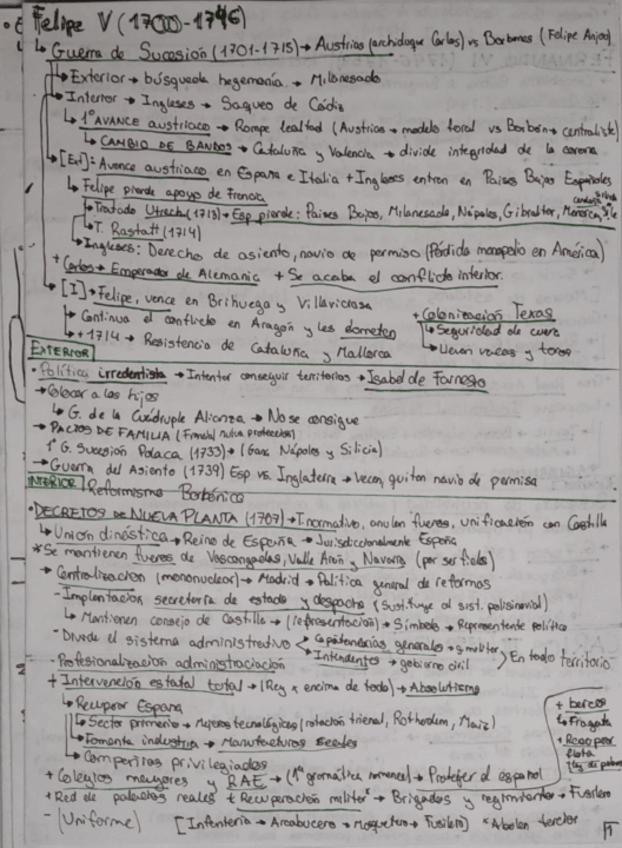 Felipe V (1700-1746)
↳ Guerra de Sucesión (1701-1715) → Austrias (archiduque Carlos) vs Borbones (Felipe Anjou)
→ Exterior → búsqueda hegemonía → Milanesado
→ Interior → Ingleses → Saqueo de Cádiz
↳ 1º AVANCE austriaco → Rompe lealtad (Austrias → modelo foral vs Borbón → centralista)
↳ CAMBIO DE BANDOS → Cataluña y Valencia → divide integridad de la corona
→ [Ext]: Avance austriaco en España e Italia + Ingleses entran en Paises Bajos Españoles
↳ Felipe pierde apoyo de Francia
→ Tratado Utrech (1713) → Esp pierde: Paises Bajos, Milanesado, Nápoles, Gibraltar, Menorca,
→ T. Rastatt (1714)
→ Ingleses: Derecho de asiento, navio de permiso (Pérdida monopolio en América)
+ Carlos → Emperador de Alemania + Se acaba el conflicto interior.
→ [I] → Felipe, vence en Brihuega y Villaviciosa
↳ Continua el conflicto en Aragón y les dometen
↳ + 1714 → Resistencia de Cataluña y Mallorca
+ Colonización Texas
↳ Seguridad de cuera
↳ Llevan vacas y toros
EXTERIOR
· Política irredentista → Intentar conseguir territorios → Isabel de Farnesio
→ Colocar a los hijos
↳ G. de la Cuádruple Alianza → No se consigue
→ PACTOS DE FAMILIA (Francia) nutua proteccion)
1º G. Sucesión Polaca (1733) → (Gana Nápoles y Silicia)
→ Guerra del Asiento (1739) Esp vs. Inglaterra → Vecen, quitan navio de permisa
INTERIOR | Reformismo Borbónico
· DECRETOS DE NUEVA PLANTA (1707) → I normativo, anulan fueros, unificación con Castilla
↳ Union dinástica → Reino de España → Jurisdiccionalmente España
* Se mantienen fueros de Vascongadas, Valle Arán y Navarra (por ser fieles)
→ Centralizacion (mononuclear) → Madrid → Politica general de reformas
- Implantacion secretaría de estado y despacho (Sustituye al sist. polisinodial)
↳ Mantienen consejo de Castilla → (representación) → Símbolo → Representante político
- Divide el sistema administrativo < Capitanenias generales → g. militar
Intendentes → gobierno civil > En todo territorio
- Profesionalización administaciación
+ Intervención estatal total → (Rey x encima de todo) → Absolutismo
↳ Recuperar España
↳ Sector primario → Mejoras tecnológicas (rotación trienal, Rotherdam, Maiz)
↳ Fomenta industria → Manufacturas Reales
↳ Compañias privilegiadas
+ barcos
↳ Fragata
+ Rego por
flota
+ Colegios mayores y RAE → (1ª gramática romance) → Proteger al español
+ Red de palacios reales + Recuperación militar* → Brigadas y regimientos → Fusilero
- (Uniforme) [Infanteria → Arcabucero → Mosquetero → Fusilero] * Abolen tercios
1